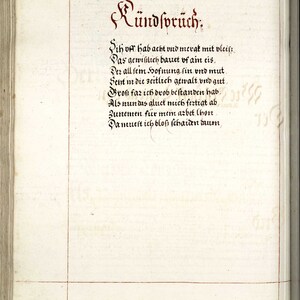 Kündspruch.
Ich uff hab acht vnd merckt mit vleis
Das gewißlich bauet vf ain eis
Der all sein Hofnung sin vnd mut
Sent in die zeitlich gewalt vnd gut
Groß far ich drob bestanden hab
Als mir das altet mich fertigt ab
Zunemen für mein arbet lhon
Damit ich bloß schaiden daruon